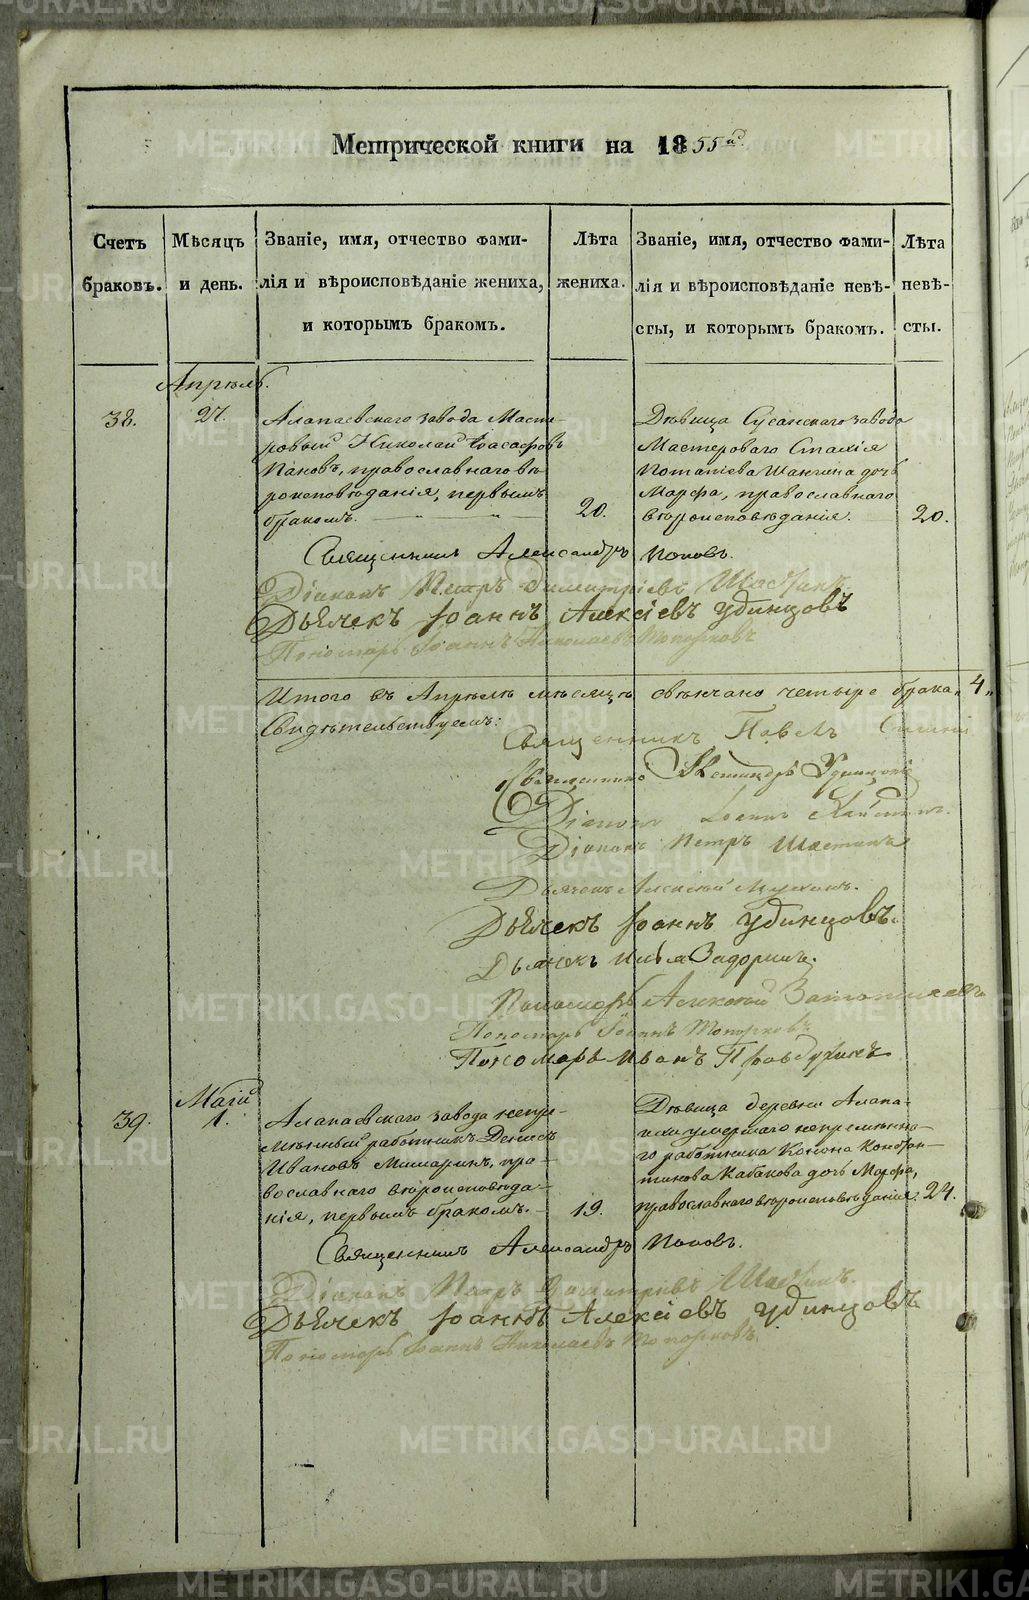 Метрической книги на 1855й
Счетъ браковъ.
Мѣсяцъ и день.
Званіе, имя, отчество фами-
лія и вѣроисповѣданіе жениха,
и которымъ бракомъ.
Лѣта
жениха.
Званіе, имя, отчество фами-
лія и вѣроисповѣданіе невѣ-
сты, и которымъ бракомъ.
Лѣта
невѣ-
сты.
Апрѣль.
38.
27.
Алапаевскаго завода Масте-
ровый Николай Іоасафовъ
Пановъ, православнаго вѣ-
роисповѣданія, первымъ
бракомъ.
20.
Дѣвица Сусанскаго завода
Мастероваго Стахія
Потапіева Шангина дочь
Марфа, православнаго
вѣроисповѣданія.
20.
Священникъ Александръ Поповъ.
Діаконъ Петръ Димитріевъ
Дьячекъ Іоаннъ Алексіевъ Удинцовъ
Пономарь Іоаннъ Николаевъ Топорковъ
Итого въ Апрѣлѣ мѣсяцѣ свѣнчано четыре брака „4„
Свидѣтельствуемъ:
Священникъ Павелъ
Священникъ
Діаконъ Іоаннъ
Діаконъ Петръ
Дьячекъ Алексій
Дьячекъ Іоаннъ Удинцовъ.
Дьячекъ Илья Задоринъ.
Пономарь Алексій
Пономарь Іоаннъ Топорковъ
Пономарь Иванъ
Маій
39.
1.
Алапаевскаго завода непре-
мѣнный работникъ Денисъ
Ивановъ Мишаринъ, пра-
вославнаго вѣроисповѣда-
нія, первымъ бракомъ.
19.
Дѣвица деревни Алапа-
ихи умершаго непремѣнна-
го работника Конона Констан-
тинова Кабакова дочь Марфа,
православнаго вѣроисповѣданія.
24.
Священникъ Александръ Поповъ.
Діаконъ Петръ Димитріевъ
Дьячекъ Іоаннъ Алексіевъ Удинцовъ
Пономарь Іоаннъ Николаевъ Топорковъ.
METRIKI.GASO-URAL.RU